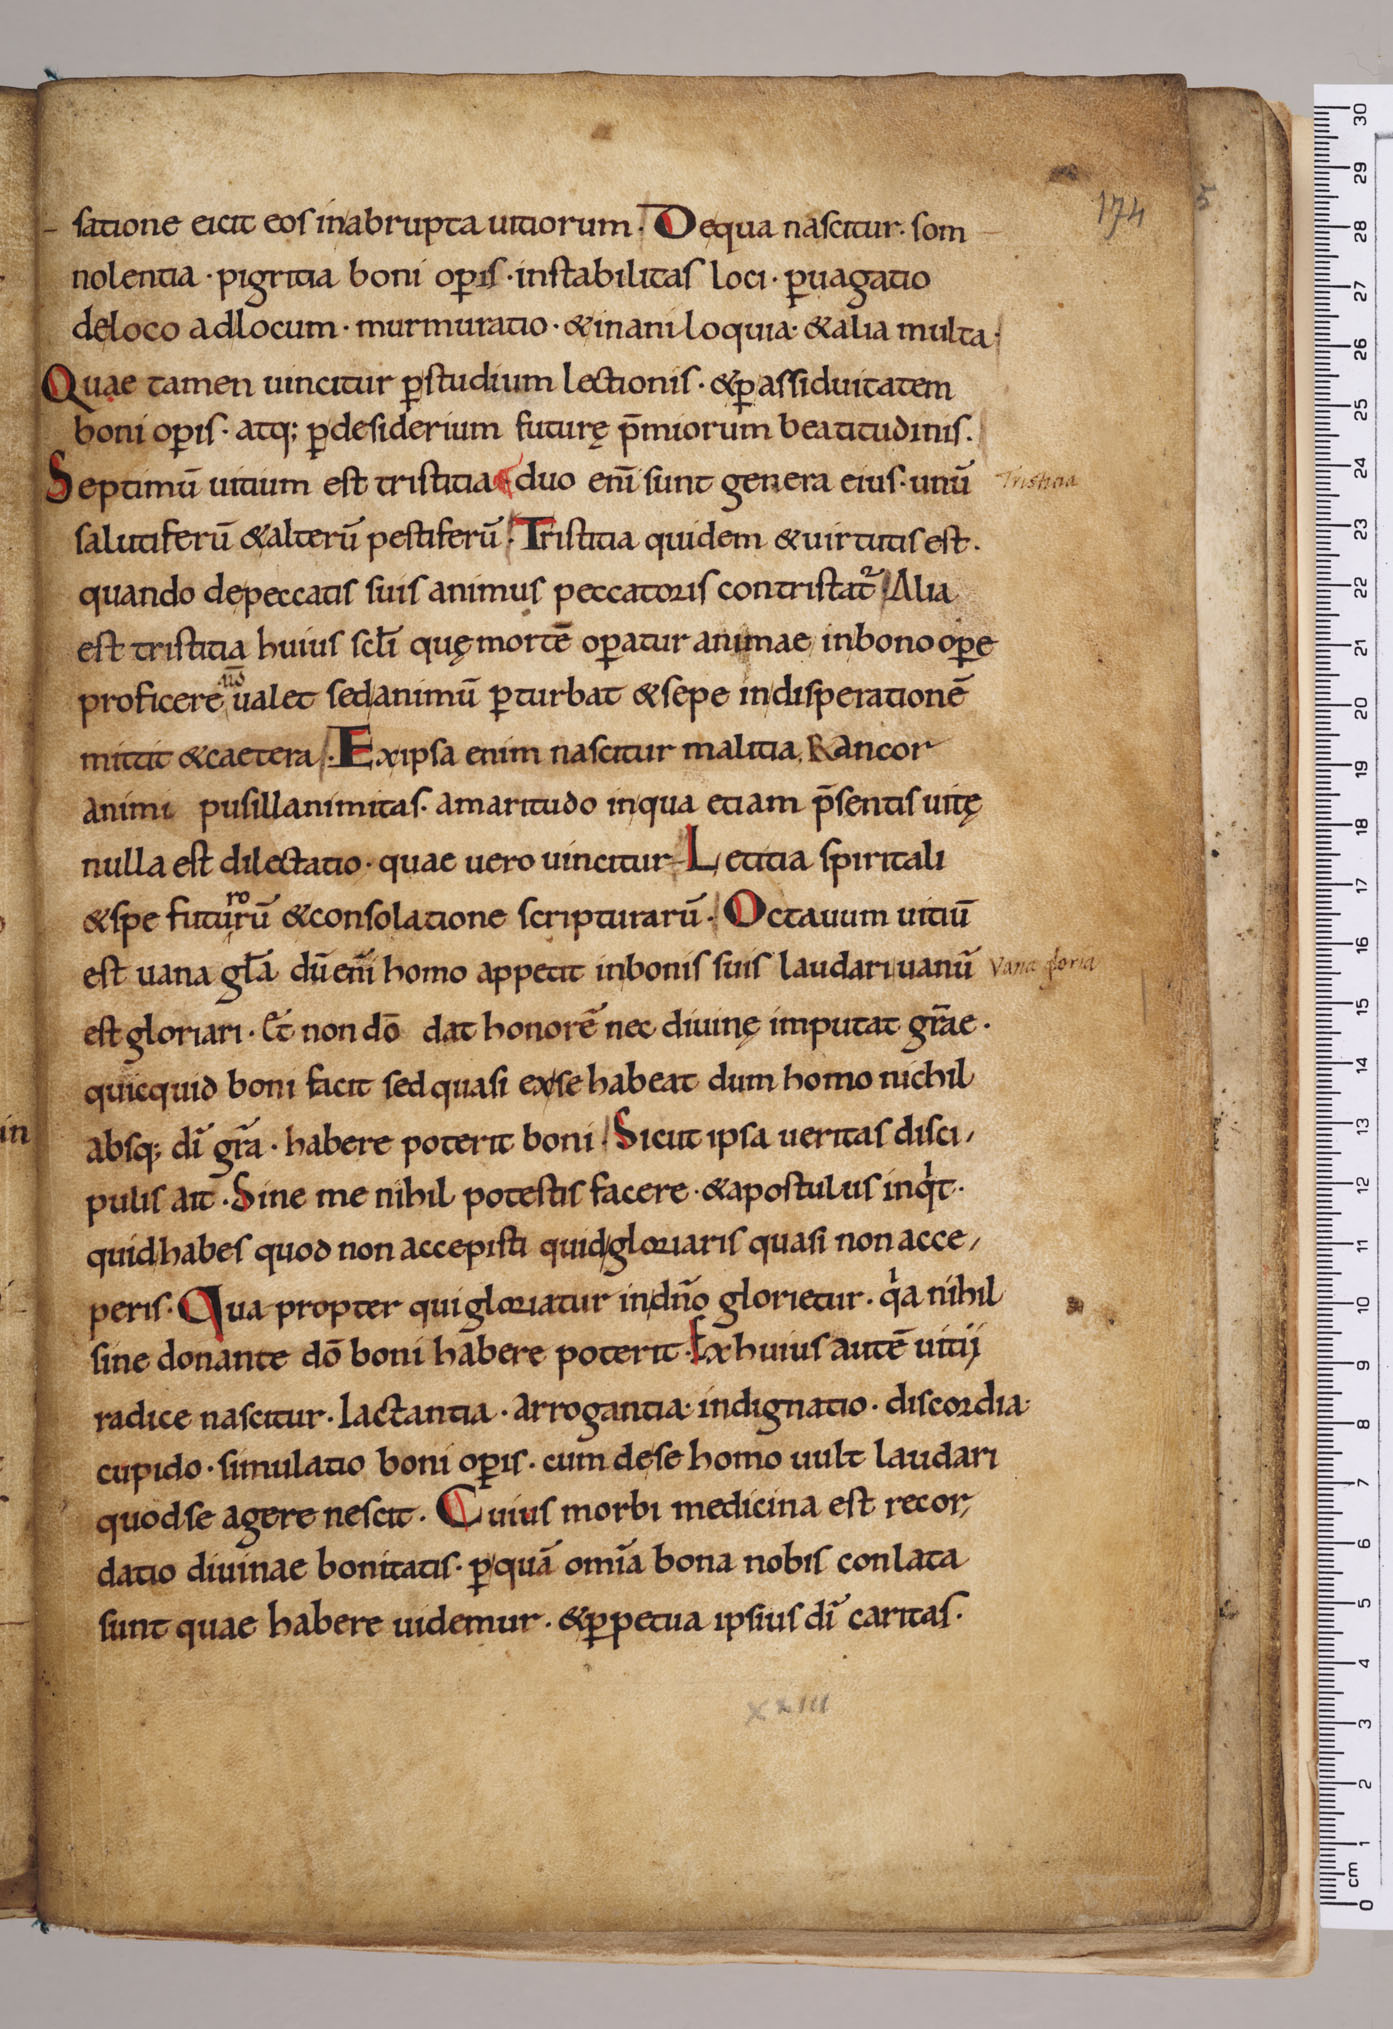 174
satione eicit eos inabrupta uitiorum. Dequa nascitur. som
nolentia. pigritia boni oꝑis. instabilitas loci. ꝑuagatio
deloco adlocum. murmuratio. &inani loquia. &alia multa.
Quae tamen uincitur ꝑstudium lectionis. &ꝑassiduitatem
boni oꝑis. atq; ꝑdesiderium futurę p̄miorum beatitudinis.
Septimū uitium est tristitia duo enī sunt genera eius. unū
Tristicia
salutiferū &alterū pestiferū. Tristitia quidem &uirtutis est.
quando depeccatis suis animus peccatoris contristat᷑ Alia
est tristitia huius scl̄i quęmortē oꝑatur animae inbono oꝑe
nō
proficere ualet sedanimū ꝑturbat &sepe indisperationē
mittit &caetera. Exipsa enim nascitur malitia, Rancor
animi pusillanimitas. amaritudo inqua etiam p̄sentis uitę
nulla est dilectatio. quae uero uincitur Letitia spiritali
ro
&spe futurū &consolatione scripturarū. Octauum uitiū
est uana gl̄a dū enī homo appetit inbonis suis laudari uanū
Vana gloria
est gloriari. Et non dō dat honorē nec diuinę imputat gr̄ae.
quicquid boni facit sed quasi exse habeat dum homo nichil
absq; dī gr̄a. habere poterit boni. Sicut ipsa ueritas disci,
pulis ait. Sine me nihil potestis facere. &apostulus inqͥt.
quidhabes quod non accepisti quidgloriaris quasi non acce,
peris. Qua propter quigloriatur indn̄o glorietur. qͥa nihil
sine donante dō boni habere poterit. Ex huius autē uitij
radice nascitur. Iactantia. arrogantia. indignatio. discordia.
cupido. simulatio boni oꝑis. cum dese homo uult laudari
quodse agere nescit. Cuius morbi medicina est recor,
datio diuinae bonitatis. ꝑquā omīa bona nobis conlata
sunt quae habere uidemur. &ꝑpetua ipsius dī caritas.
xxiii
in
5
30
29
28
27
26
25
24
23
22
21
20
19
18
17
16
15
14
13
12
11
10
9
8
7
6
5
4
3
2
1
cm
0